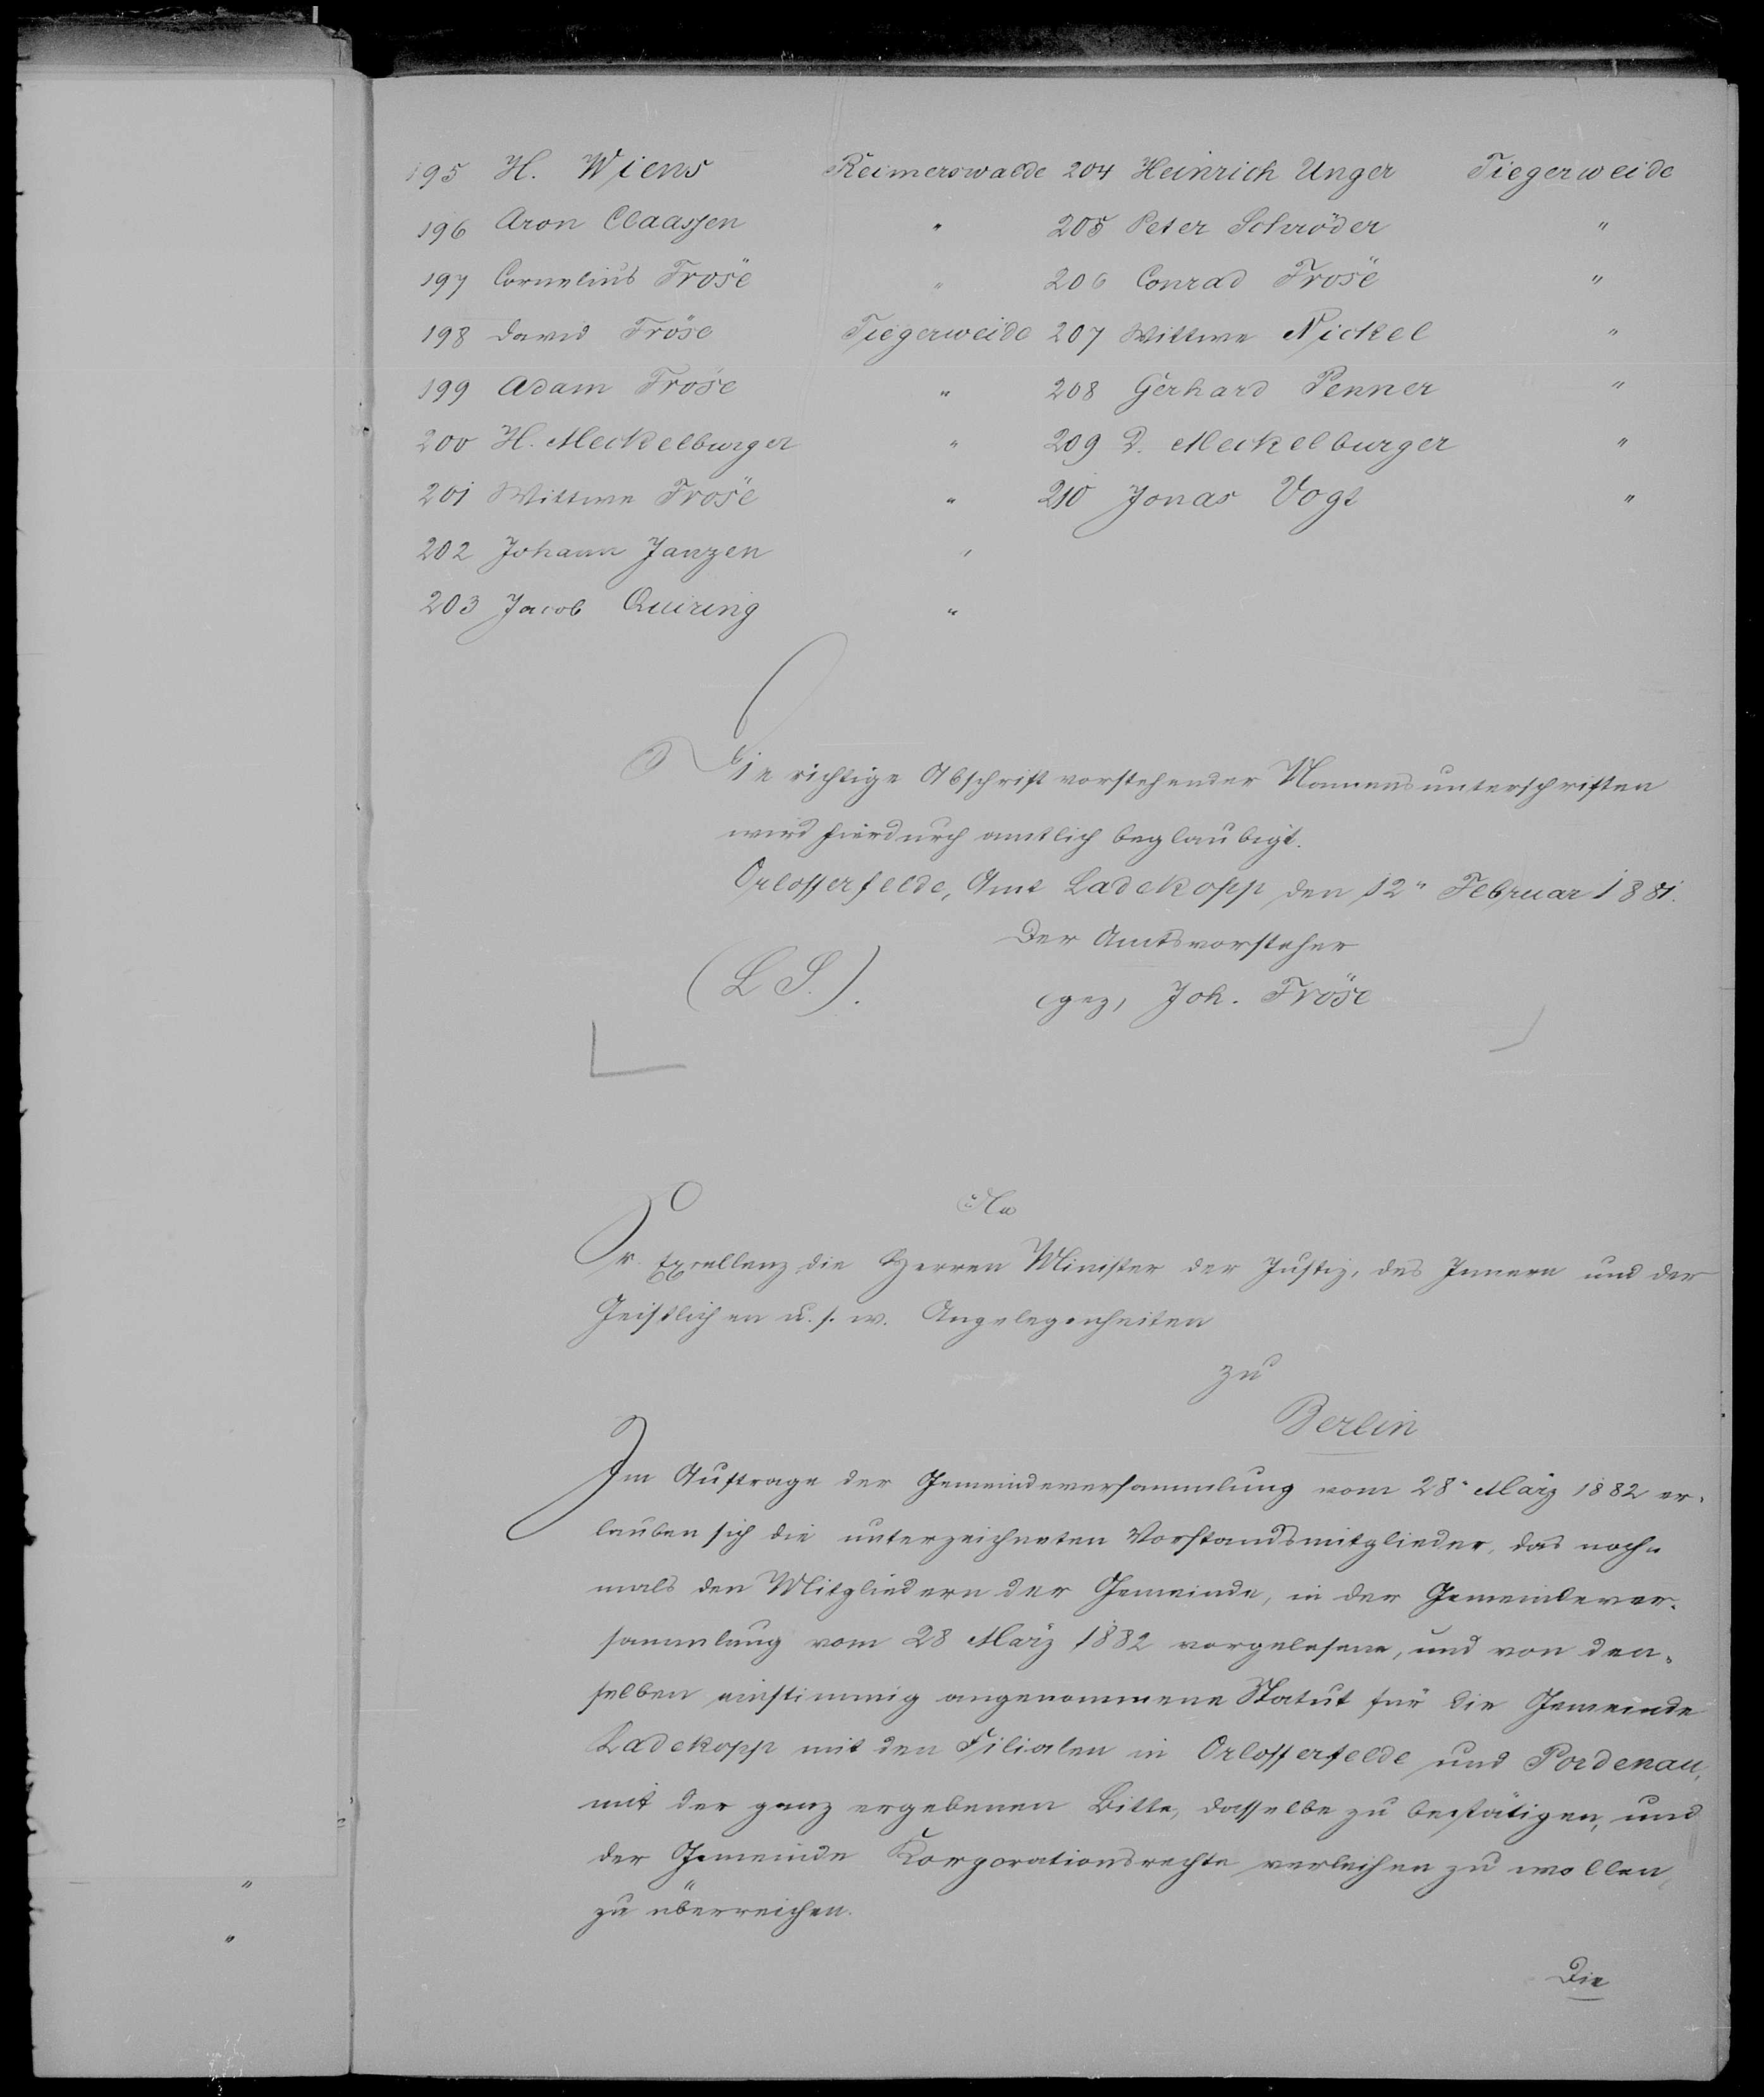 195 H. Wiens Reimerswalde 204 Heinrich Unger Tiegerweide
196 Aron Claassen " 205 Peter Schröder "
197 Cornelius Fröse " 206 Conrad Fröse "
198 David Fröse Tiegerweide 207 Wittwe Nickel "
199 Adam Fröse " 208 Gerhard Penner "
200 H. Meckelburger " 209 D. Meckelburger "
201 Wittwe Fröse " 210 Jonas Vogt "
202 Johann Janzen "
203 Jacob Quiring "
Die richtige Abschrift vorstehender Namensunterschriften
wird hierdurch amtlich beglaubigt.
Orlofferfelde, Amt Ladekopp, den 12" Februar 1881.
Der Amtsvorsteher
(L S.). (gez) Joh. Fröse
An
Sr. Exzellenz die Herren Minister der Justiz, des Innern und der
Geistlichen u. s. w. Angelegenheiten
zu
Berlin
Im Auftrage der Gemeindeversammlung vom 28" März 1882 er-
lauben sich die unterzeichneten Vorstandsmitglieder, das noch-
mals den Mitgliedern der Gemeinde, in der Gemeindever-
sammlung vom 28 März 1882 vorgelesene, und von den-
selben einstimmig angenommene Statut für die Gemeinde
Ladekopp mit den Filialen in Orlofferfelde und Pordenau,
mit der ganz ergebenen Bitte, dasselbe zu bestätigen, und
der Gemeinde Korporationsrechte verleihen zu wollen,
zu überreichen.
Die
"
"